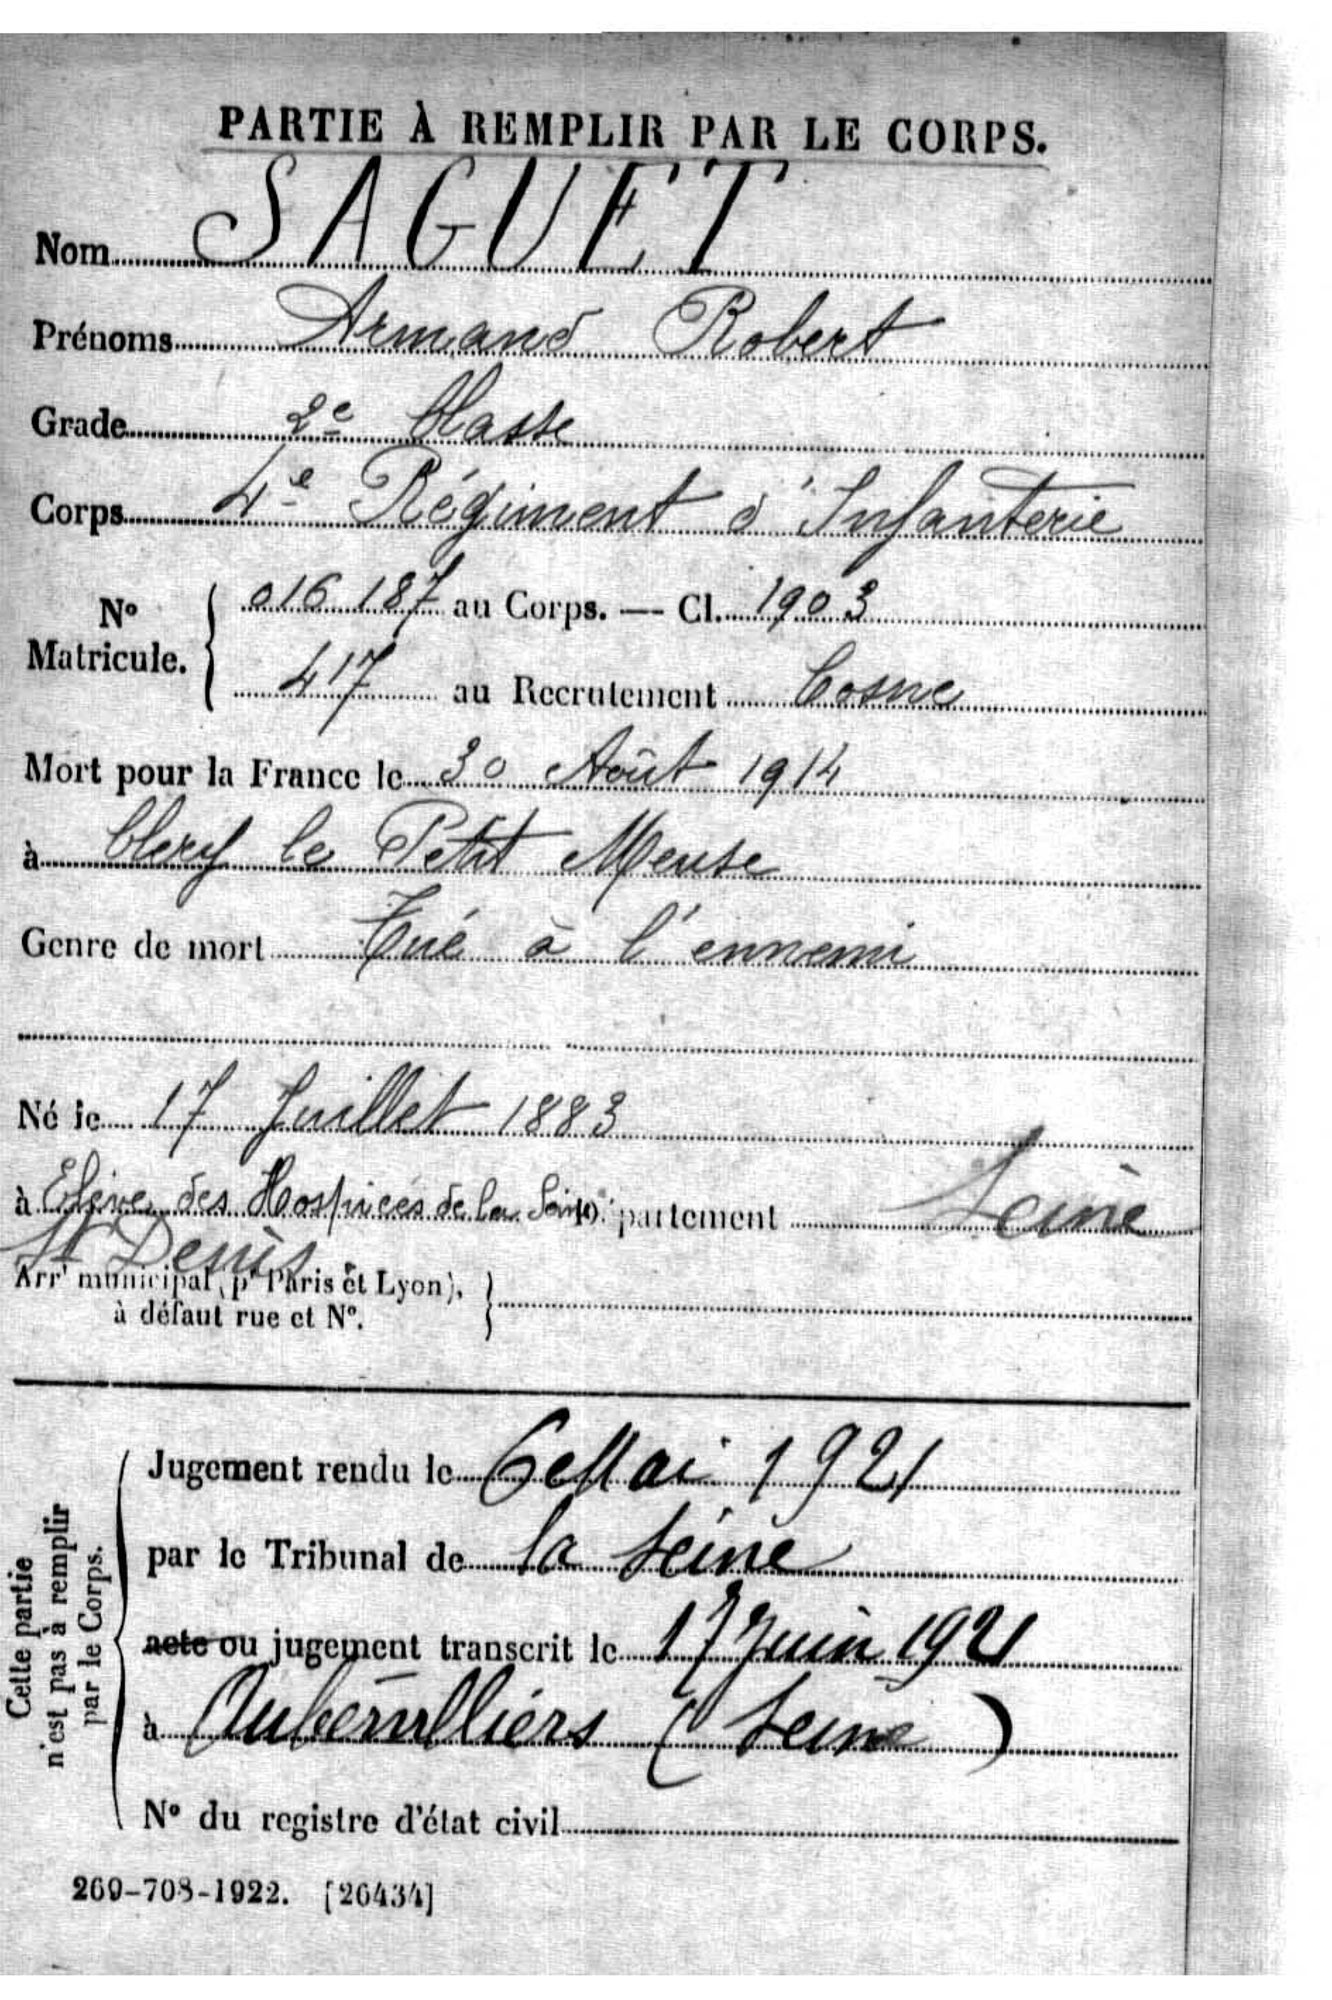 PARTIE À REMPLIR PAR LE CORPS.
Nom SAGUET
Prénoms Armand Robert
Grade 2e Classe
Corps 4e Régiment d'Infanterie
No Matricule. 016 187 au Corps. — Cl. 1903
417 au Recrutement Cosne
Mort pour la France le 30 Août 1914
à Clery le Petit Meuse
Genre de mort Tué à l'ennemi
Né le 17 Juillet 1883
à Elève des Hospices de la Seine Département Seine
St Denis
Arrt municipal (pr Paris et Lyon),
à défaut rue et No.
Cette partie
n'est pas à remplir
par le Corps.
Jugement rendu le 6 Mai 1921
par le Tribunal de la Seine
acte ou jugement transcrit le 17 Juin 1921
à Aubervilliers (Seine)
No du registre d'état civil
269-708-1922. [26434]